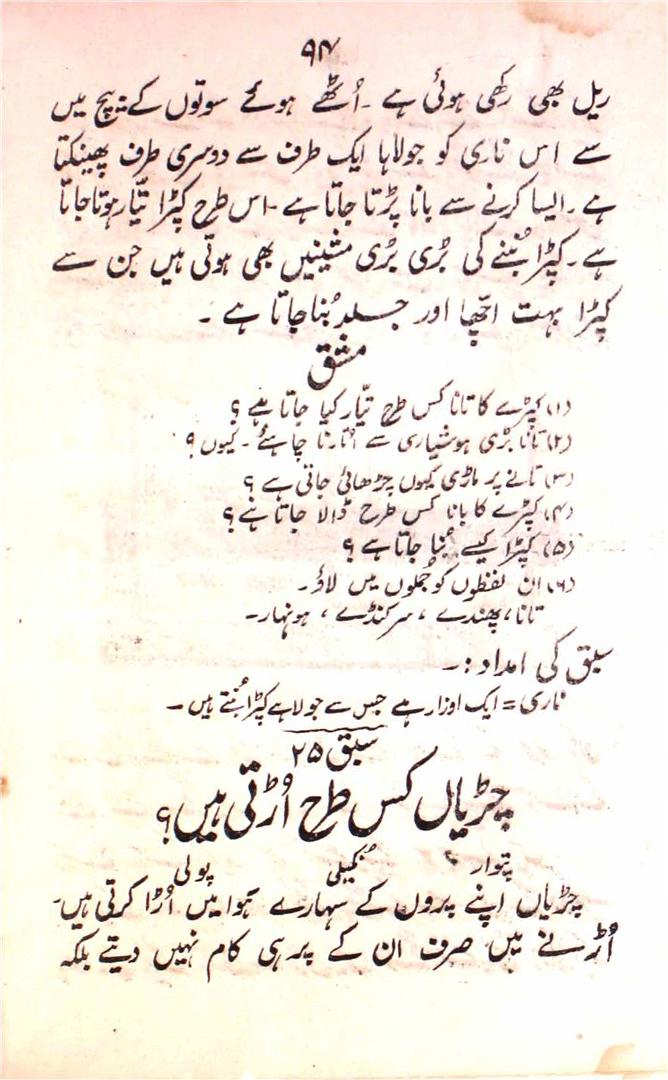 ۹۴
ریل بھی رکھی ہوئی ہے ۔ اُٹھے ہوئے سوتوں کے بیچ میں
سے اس ناری کو جولاہا ایک طرف سے دوسری طرف پھینکتا
ہے ۔ ایسا کرنے سے بانا پڑتا جاتا ہے ۔ اس طرح کپڑا تیّار ہوتا جاتا
ہے ۔ کپڑا بُننے کی بڑی بڑی مشینیں بھی ہوتی ہیں جن سے
کپڑا بہت اچھّا اور جلد بُنا جاتا ہے ۔
مشق
(۱) کپڑے کا تانا کس طرح تیّار کیا جاتا ہے ؟
(۲) تانا بڑی ہوشیاری سے اُتارنا چاہئے ۔ کیوں ؟
(۳) تانے پر ماڑی کیوں چڑھائی جاتی ہے ؟
(۴) کپڑے کا بانا کس طرح ڈالا جاتا ہے ؟
(۵) کپڑا کیسے بُنا جاتا ہے ؟
(۶) ان لفظوں کو جُملوں میں لاؤ ۔
تانا ، پھندے ، سرکنڈے ، ہونہار ۔
سبق کی امداد :۔
ناری = ایک اوزار ہے جس سے جولاہے کپڑا بُنتے ہیں ۔
سبق ۲۵
چڑیاں کس طرح اُڑتی ہیں ؟
پتوار نُکیلی پولی
چڑیاں اپنے پروں کے سہارے ہوا میں اُڑا کرتی ہیں ۔
اُڑنے میں صرف ان کے پر ہی کام نہیں دیتے بلکہ